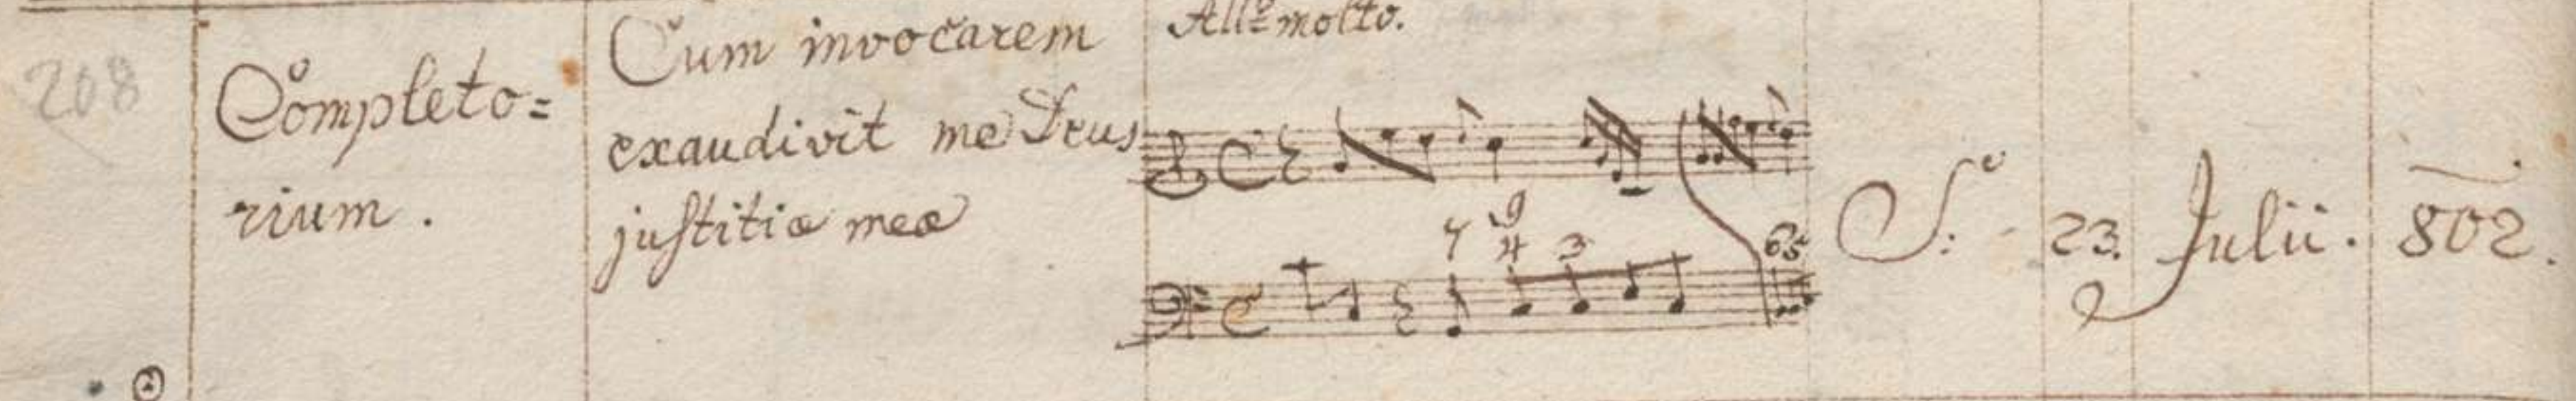 208
Completo=
rium.
Cum invocarem
exaudivit me Deus
justitiæ meæ
All.º molto.
7 9
4 3
65
S.º:
23. Julii. 802.